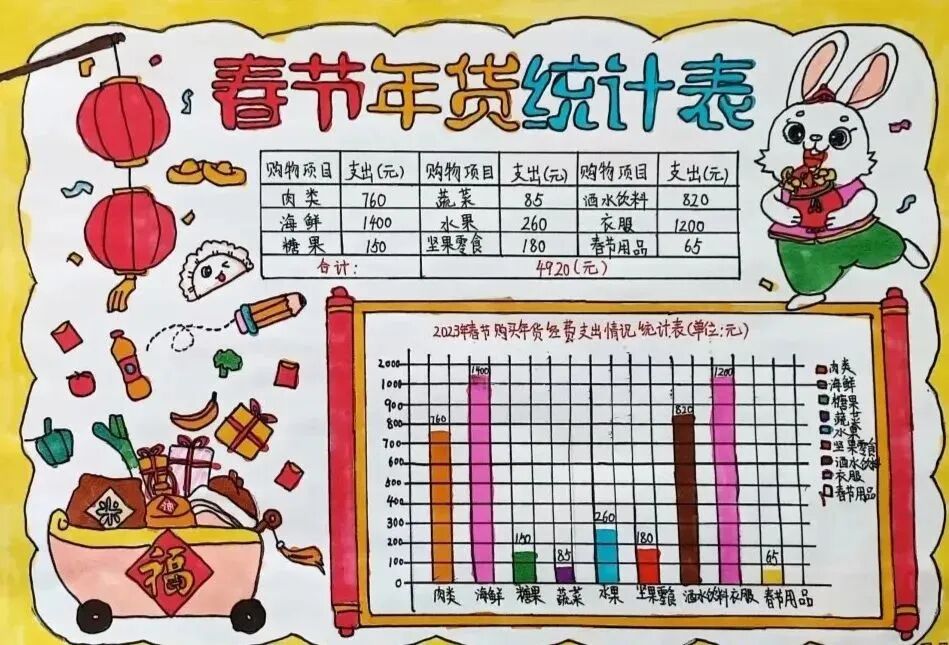 春节年货统计表
购物项目 支出(元) 购物项目 支出(元) 购物项目 支出(元)
肉类 760 蔬菜 85 酒水饮料 820
海鲜 1400 水果 260 衣服 1200
糖果 150 坚果零食 180 春节用品 65
合计: 4920(元)
2023年春节购买年货经费支出情况统计表(单位:元)
2000
1000
900
800
700
600
500
400
300
200
100
0
760
1400
150
85
260
180
820
1200
65
肉类 海鲜 糖果 蔬菜 水果 坚果零食 酒水饮料 衣服 春节用品
肉类
海鲜
糖果
蔬菜
水果
坚果零食
酒水饮料
衣服
春节用品
福
福